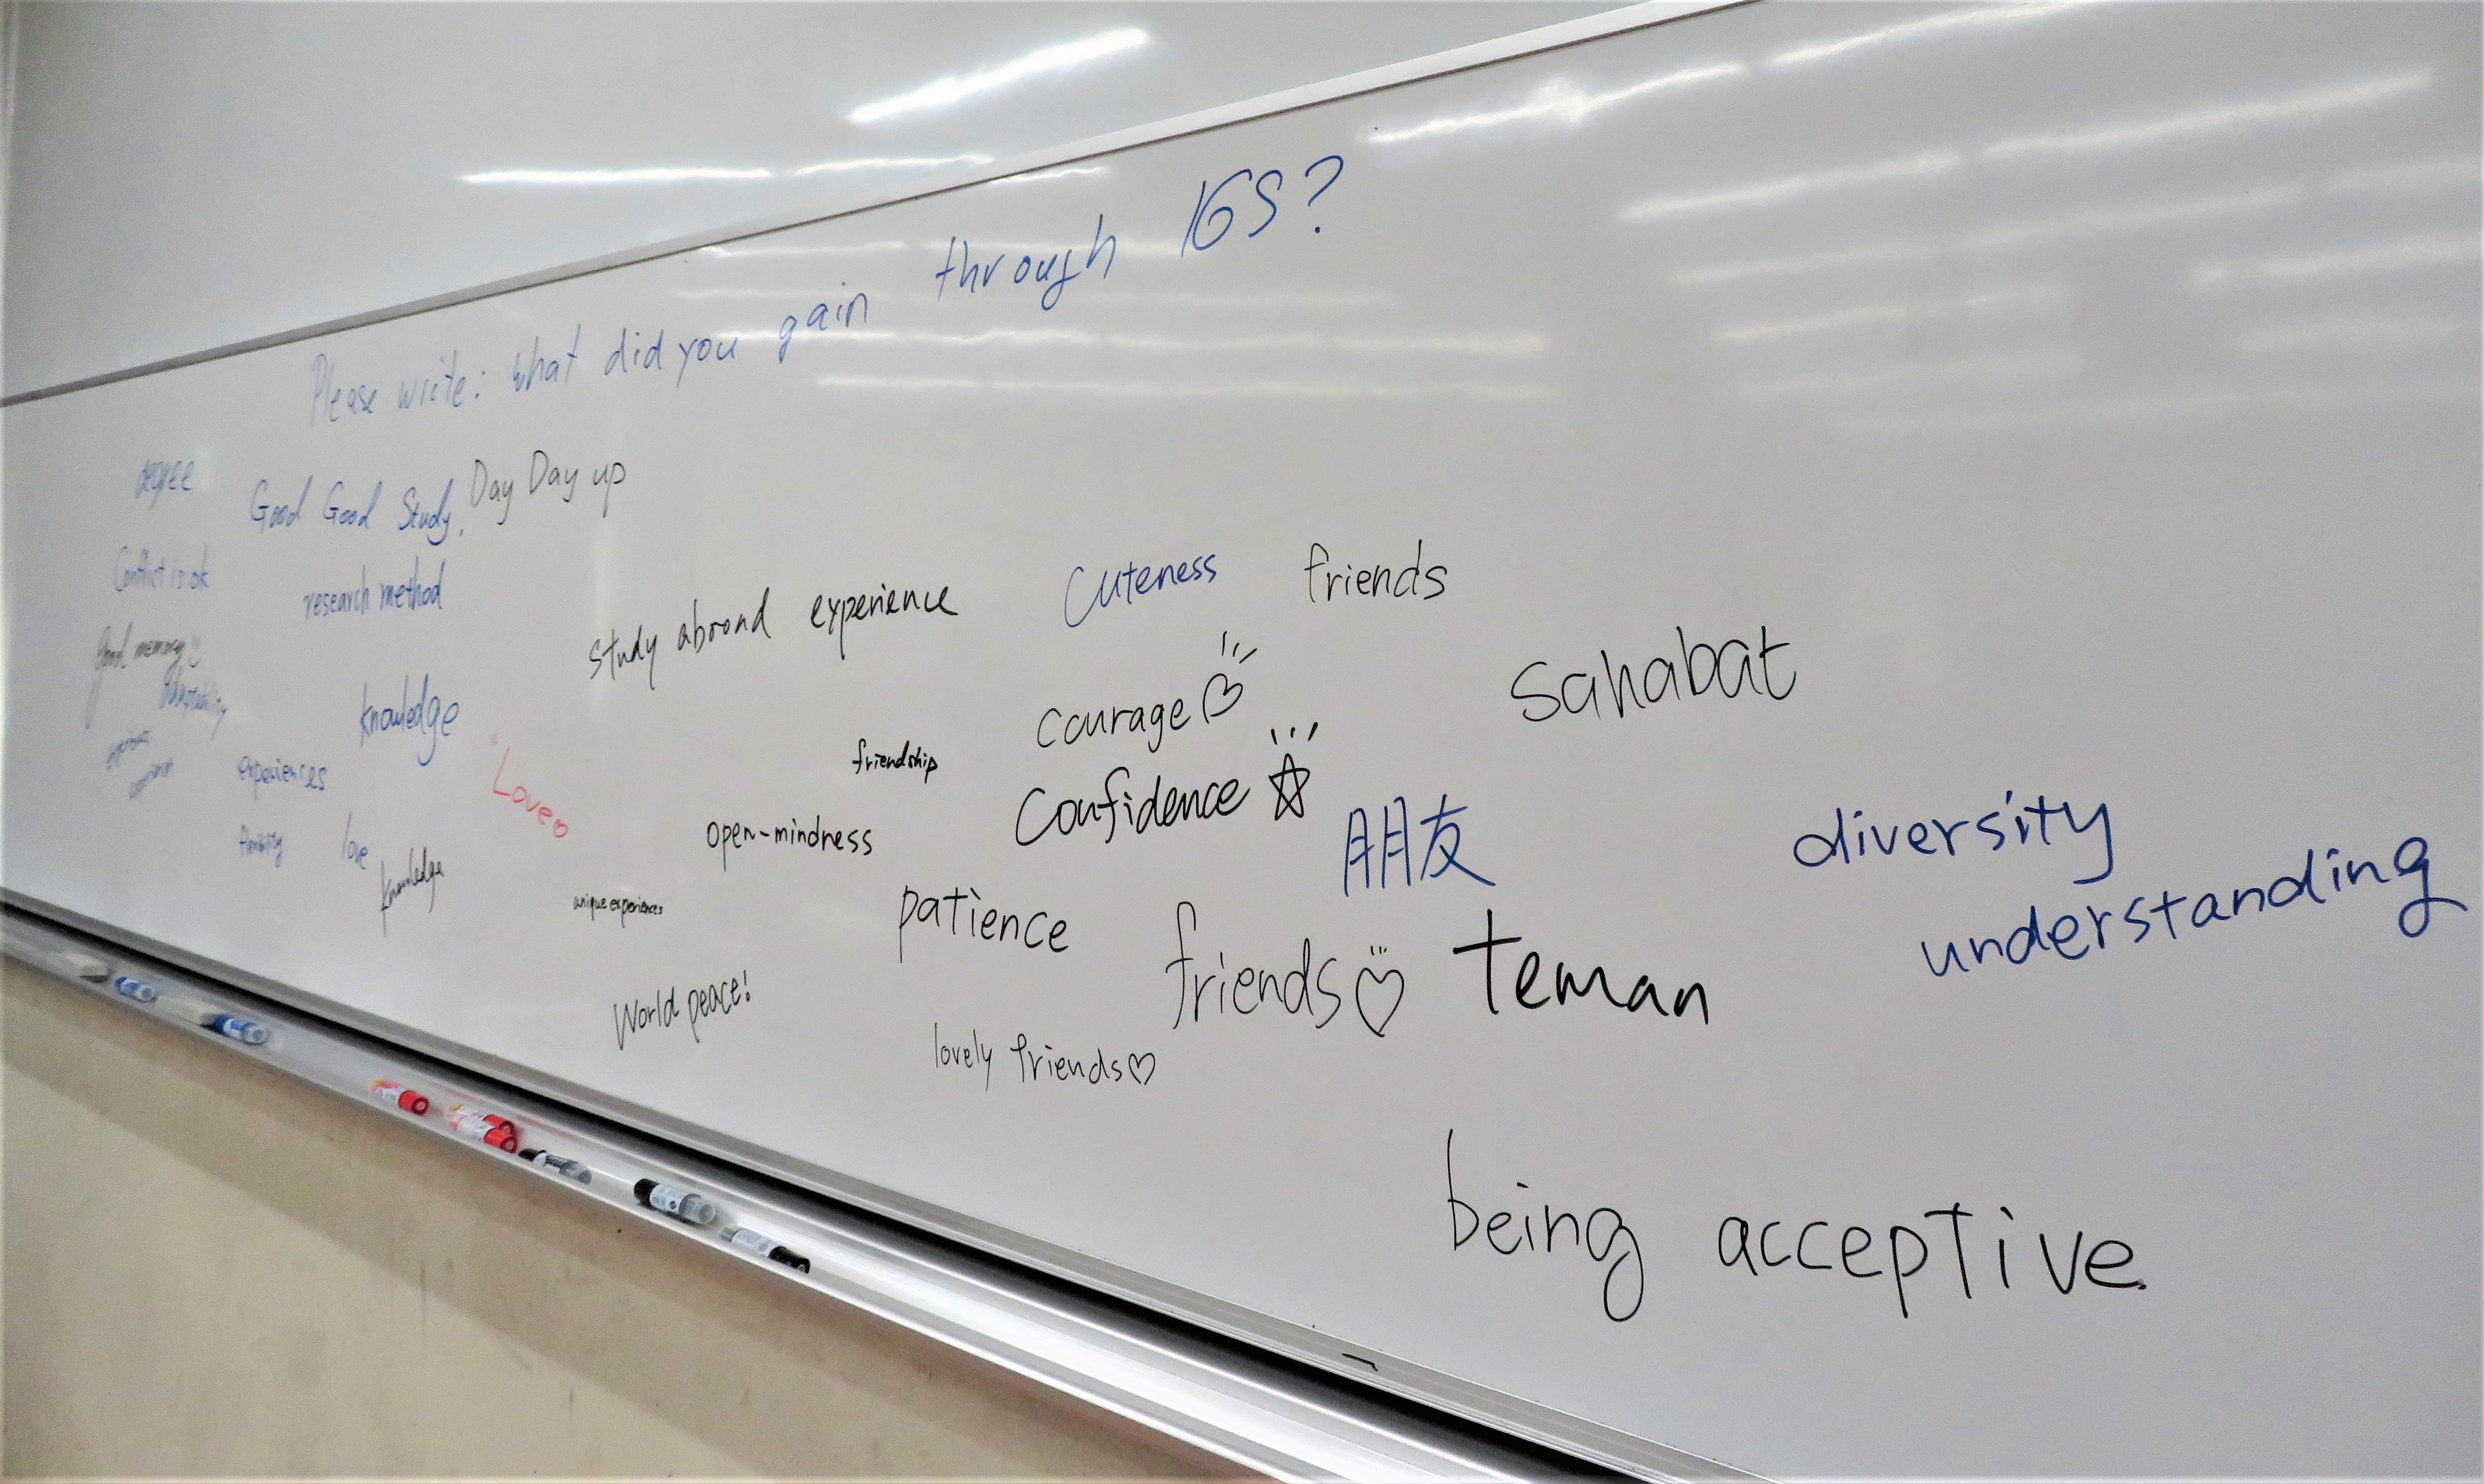 Please write: What did you gain through IGS?
degree
Good Good Study, Day Day up
Conflict is ok
research method
study abroad experience
Cuteness
friends
good memory
adaptability
knowledge
courage
sahabat
experiences
Love
friendship
Confidence
love
knowledge
open-mindness
朋友
diversity
understanding
unique experiences
patience
friends
teman
World peace!
lovely friends
being acceptive